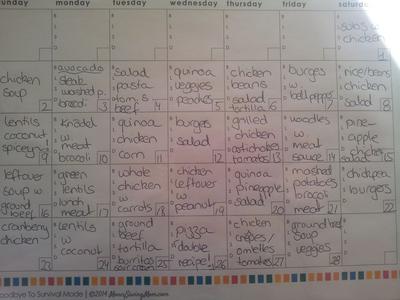 sunday monday tuesday wednesday thursday friday saturday
subs w
chicken
1
chicken
soup
2
avocado
steak
mashed p.
brocoli
3
salad
pasta
tom. &
beef
4
quinoa
veggies
peaches
5
chicken
beans
salad
tortilla
6
burges
w.
bell peppers
7
rice/beans
chicken
salad
8
lentils
coconut
9
knödel
w.
meat
brocoli
10
quinoa
chicken
corn
11
burges
salad
12
grilled
chicken
artichokes
tomatoes
13
noodles
w.
meat
sauce
14
pine-
apple
chicken
15
leftover
soup w
ground
beef
16
green
lentils
lunch
meat
17
whole
chicken
w
carrots
18
chicken
leftover
w
peanut
19
quinoa
pineapple
salad
20
mashed
potatoes
brocoli
meat
21
chickpea
burgers
22
cranberry
chicken
23
lentils
w
coconut
24
ground
beef
tortilla
burritos
sour cream
25
pizza
"double
recipe"
26
chicken
crepes/
omelles
tomatoes
27
ground beef
soup
veggies
28
Goodbye To Survival Mode | ©2014 MoneySavingMom.com